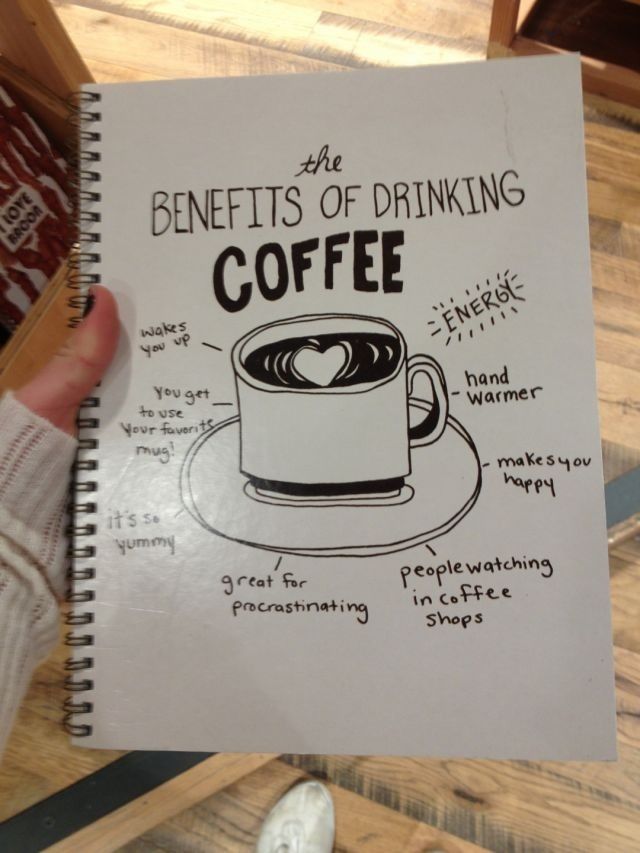 the
BENEFITS OF DRINKING
COFFEE
ENERGY
wakes
you up
hand
warmer
You get
to use
Your favorite
mug!
makes you
happy
it's so
yummy
great for
procrastinating
people watching
in coffee
shops
I LOVE